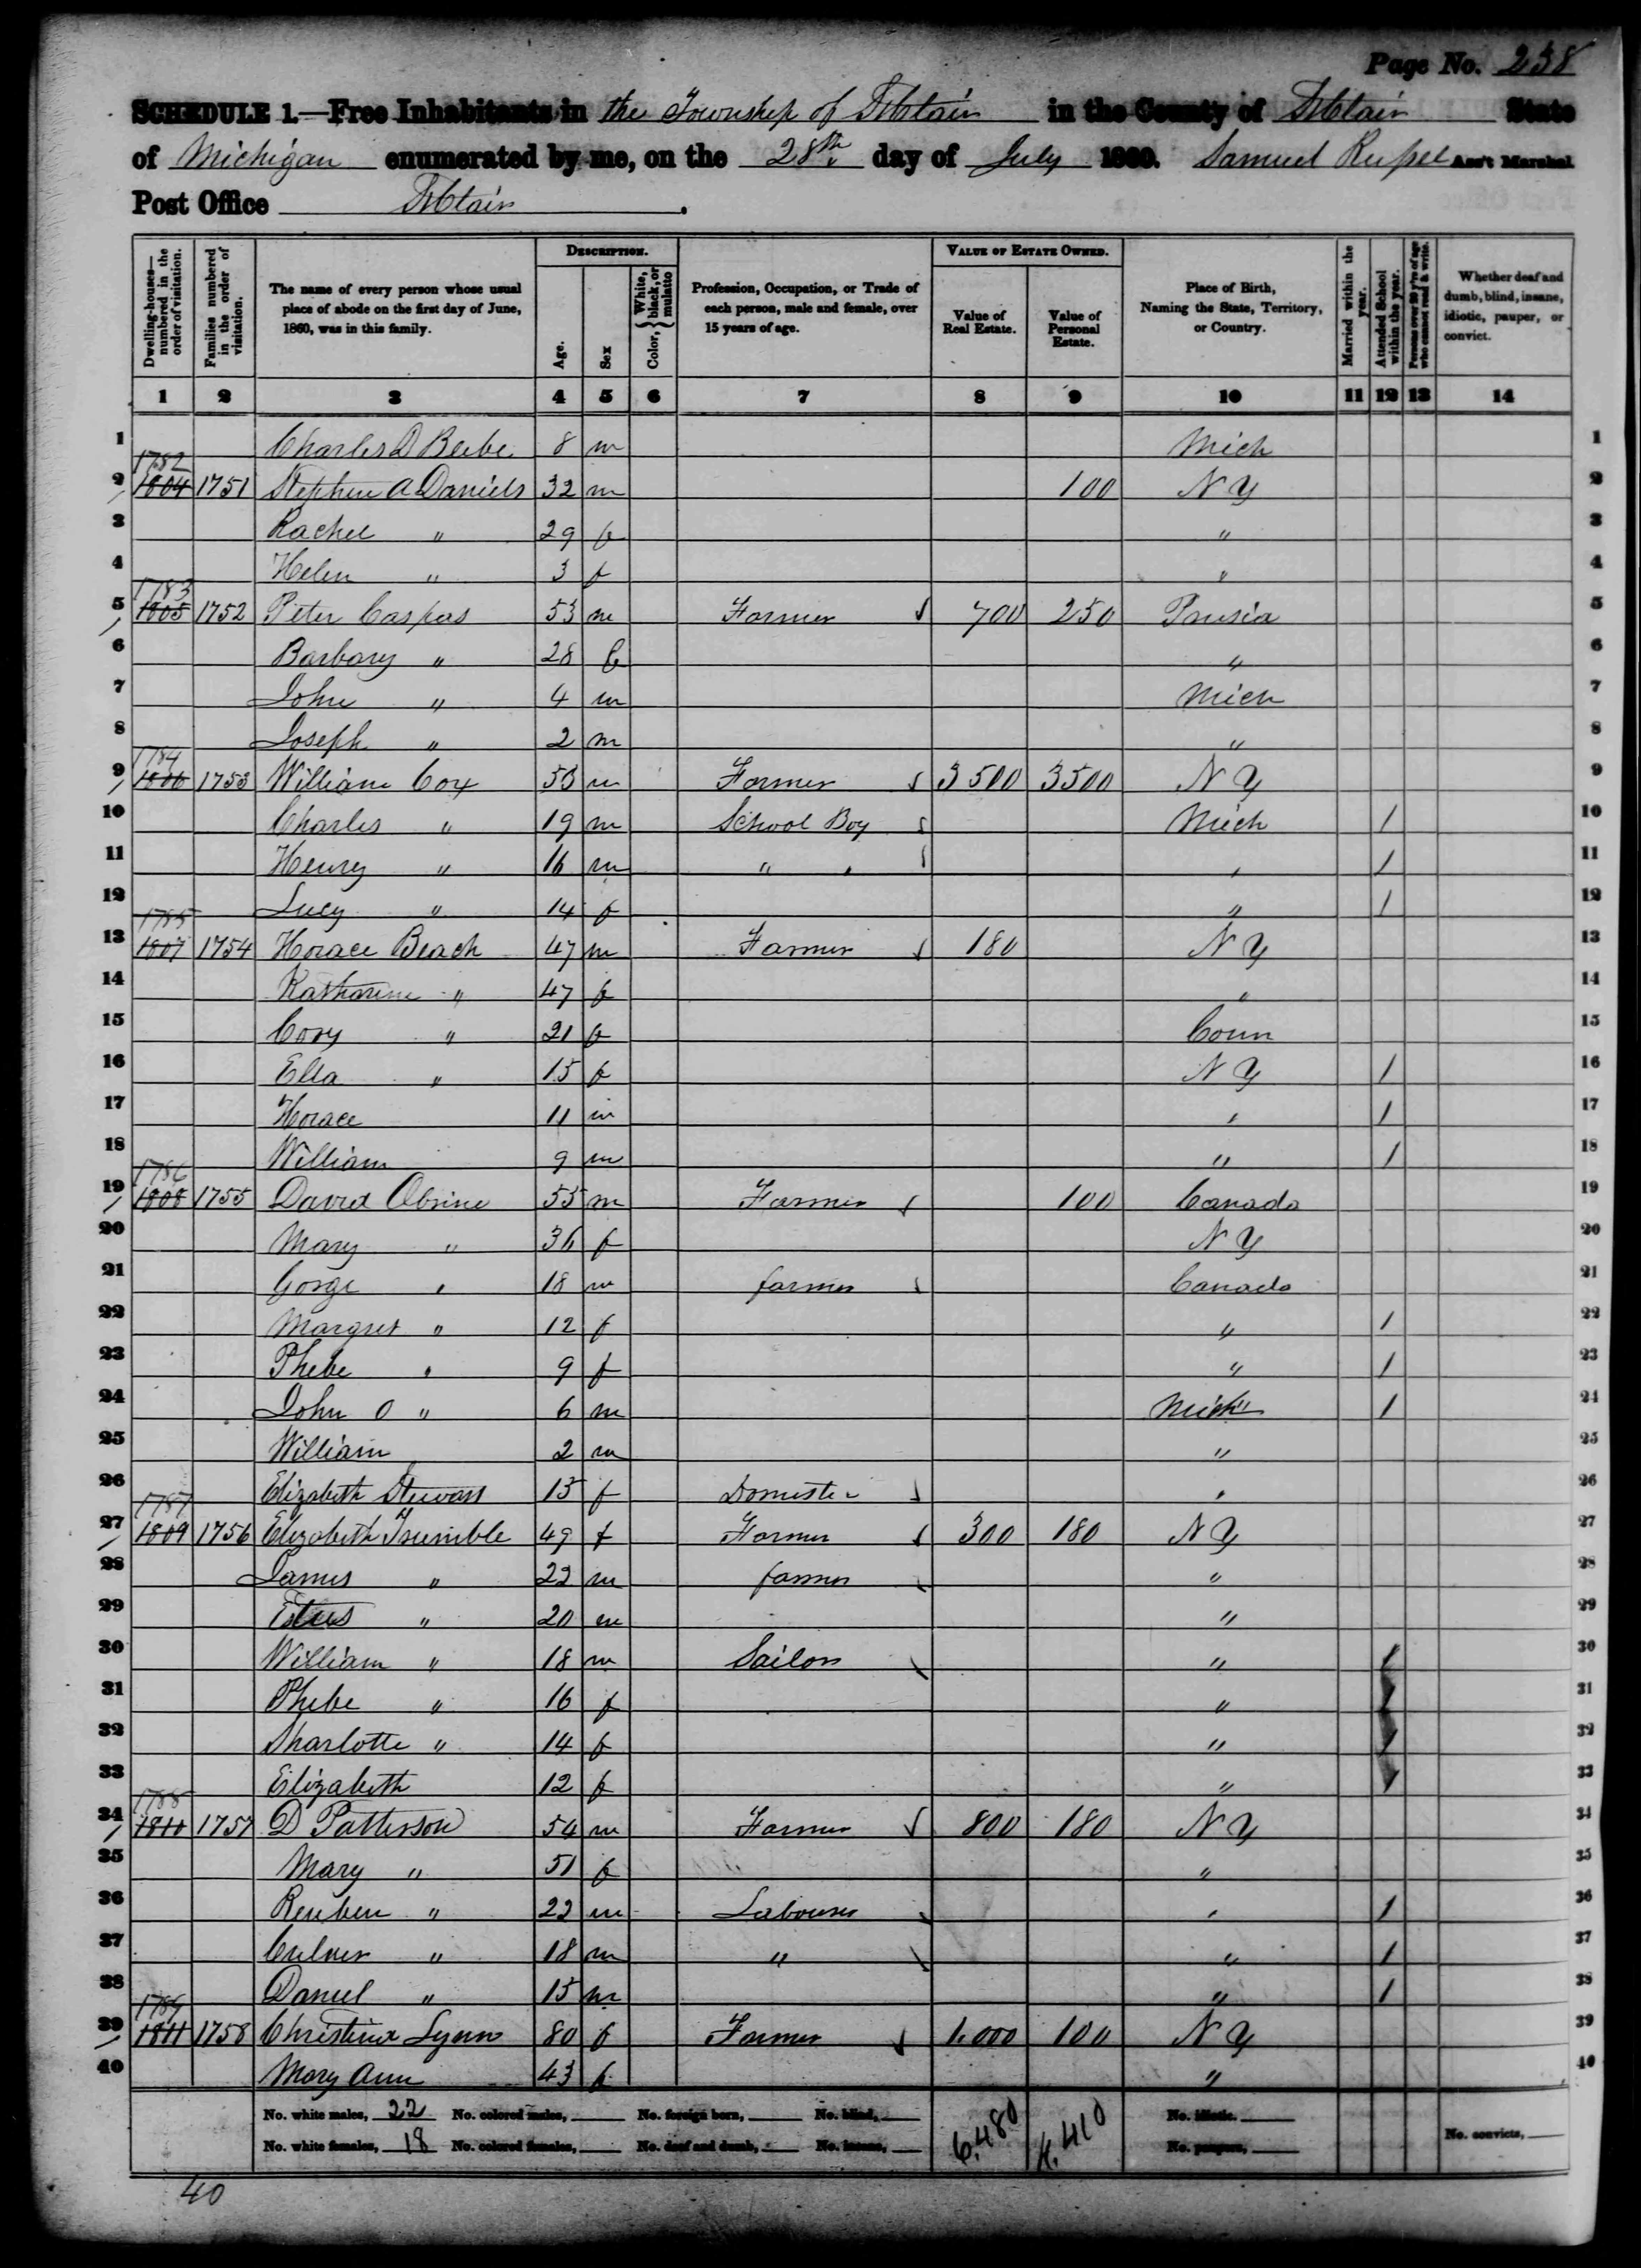 Page No. 238
SCHEDULE 1.—Free Inhabitants in the Township of St Clair in the County of St Clair State
of Michigan enumerated by me, on the 28th day of July 1860. Samuel Russel Ass't Marshal
Post Office St Clair.
Dwelling-houses—numbered in the order of visitation.
Families numbered in the order of visitation.
The name of every person whose usual place of abode on the first day of June, 1860, was in this family.
DESCRIPTION.
Age.
Sex
Color, { White, black, or mulatto
Profession, Occupation, or Trade of each person, male and female, over 15 years of age.
VALUE OF ESTATE OWNED.
Value of Real Estate.
Value of Personal Estate.
Place of Birth, Naming the State, Territory, or Country.
Married within the year.
Attended School within the year.
Persons over 20 y'rs of age who cannot read & write.
Whether deaf and dumb, blind, insane, idiotic, pauper, or convict.
1 2 3 4 5 6 7 8 9 10 11 12 13 14
1 Charles D Beebe 8 m Mich 1
1782
2 1804 1751 Stephen A Daniels 32 m 100 N Y 2
3 Rachel " 29 f " 3
4 Helen " 3 f " 4
1783
5 1805 1752 Peter Caspas 53 m Farmer 700 250 Prusia 5
6 Barbary " 28 f " 6
7 John " 4 m Mich 7
8 Joseph " 2 m " 8
1784
9 1806 1753 William Cox 53 m Farmer 3500 3500 N Y 9
10 Charles " 19 m School Boy Mich 1 10
11 Henry " 16 m " " " 1 11
12 Lucy " 14 f " 1 12
1785
13 1807 1754 Horace Beach 47 m Farmer 180 N Y 13
14 Katharine " 47 f " 14
15 Cory " 21 f Conn 15
16 Ella " 15 f N Y 1 16
17 Horace 11 m " 1 17
18 William 9 m " 1 18
1786
19 1808 1755 David Obrine 55 m Farmer 100 Canada 19
20 Mary " 36 f N Y 20
21 Gorge " 18 m farmer Canada 21
22 Margret " 12 f " 1 22
23 Phebe " 9 f " 1 23
24 John O " 6 m Mich 1 24
25 William 2 m " 25
26 Elizabeth Stewart 15 f Domestic " 26
1787
27 1809 1756 Elizabeth Trumble 49 f Farmer 300 180 N Y 27
28 James " 22 m farmer " 28
29 " 20 m " 29
30 William " 18 m Sailor " 1 30
31 Phebe " 16 f " 1 31
32 Sharlotte " 14 f " 1 32
33 Elizabeth 12 f " 1 33
1788
34 1810 1757 D Patterson 54 m Farmer 800 180 N Y 34
35 Mary " 51 f " 35
36 Reuben " 22 m Labourer " 1 36
37 Culver " 18 m " " 1 37
38 Daniel " 15 m " 1 38
1789
39 1811 1758 Christina Lynn 80 f Farmer 1,000 100 N Y 39
40 Mary Ann 43 f " 40
No. white males, 22 No. colored males, No. foreign born, No. blind, 6,480 4,410 No. idiotic.
No. white females, 18 No. colored females, No. deaf and dumb, No. insane, No. paupers, No. convicts,
40